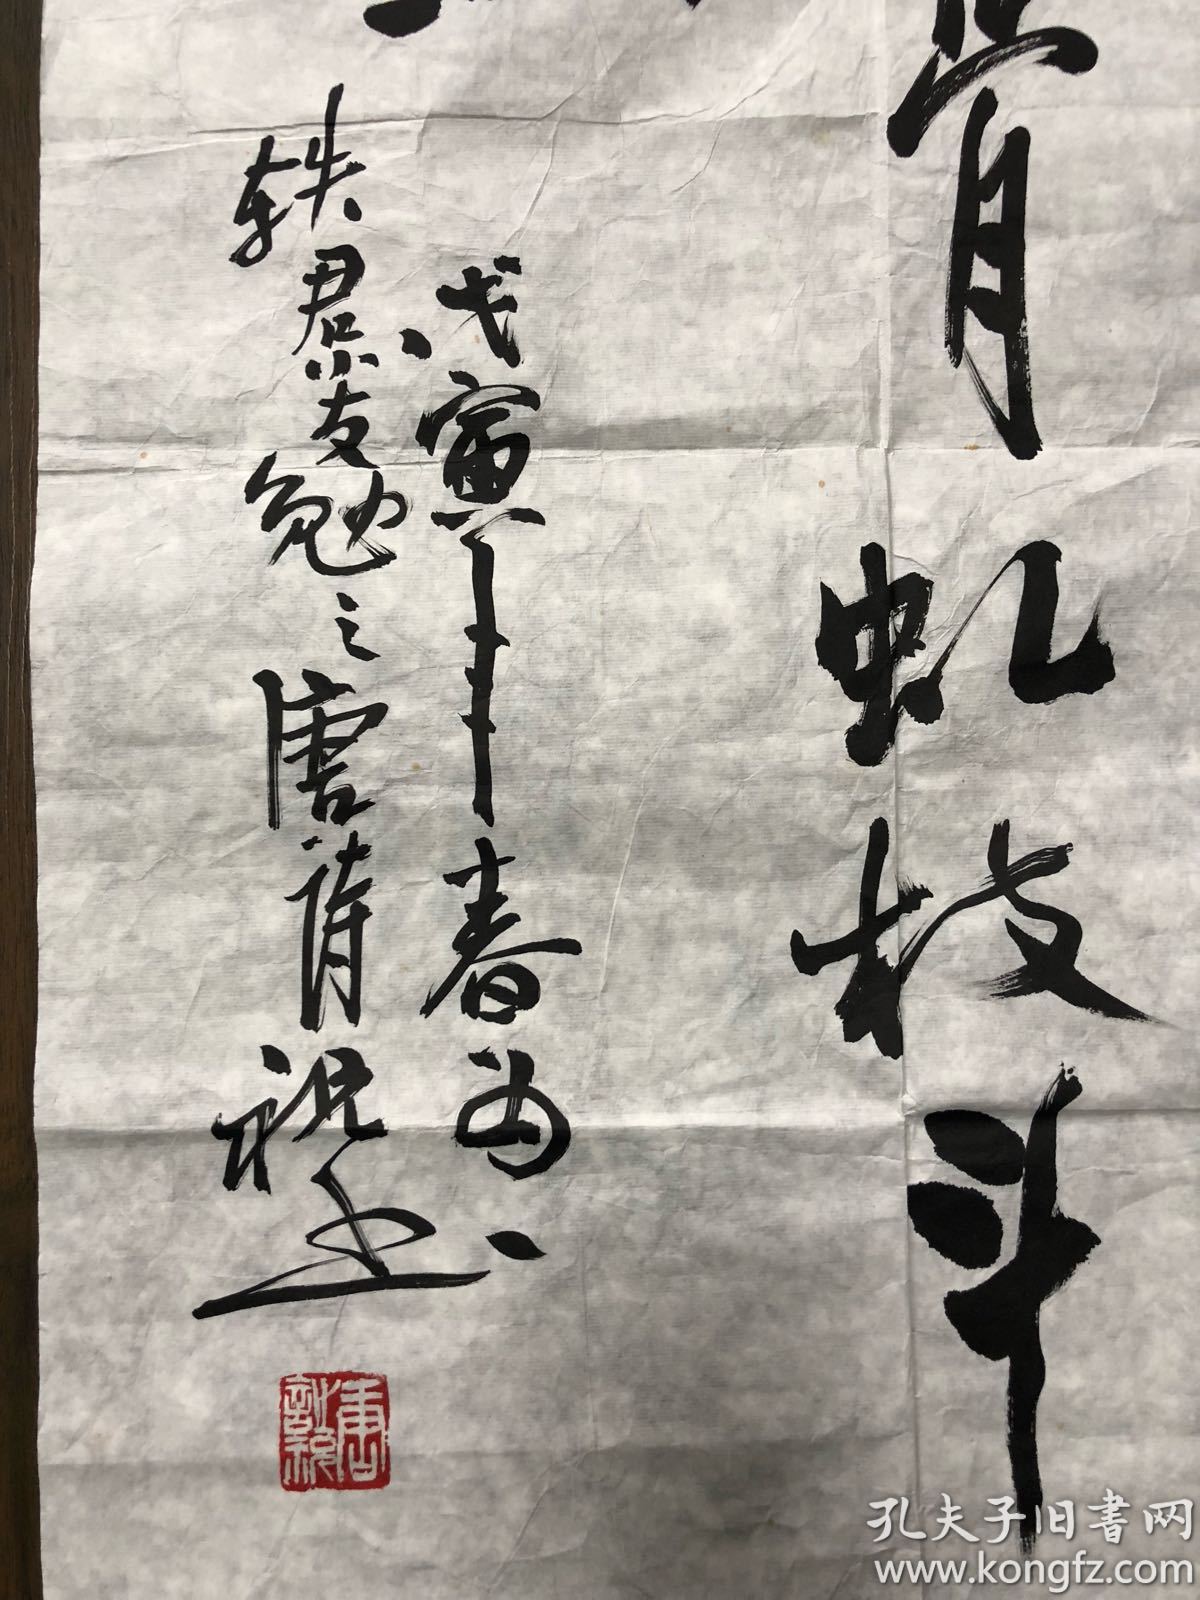 骨虬枝斗
戊寅年春为
轶君友勉之唐诗祝书
唐诗祝
孔夫子旧書网
www.kongfz.com